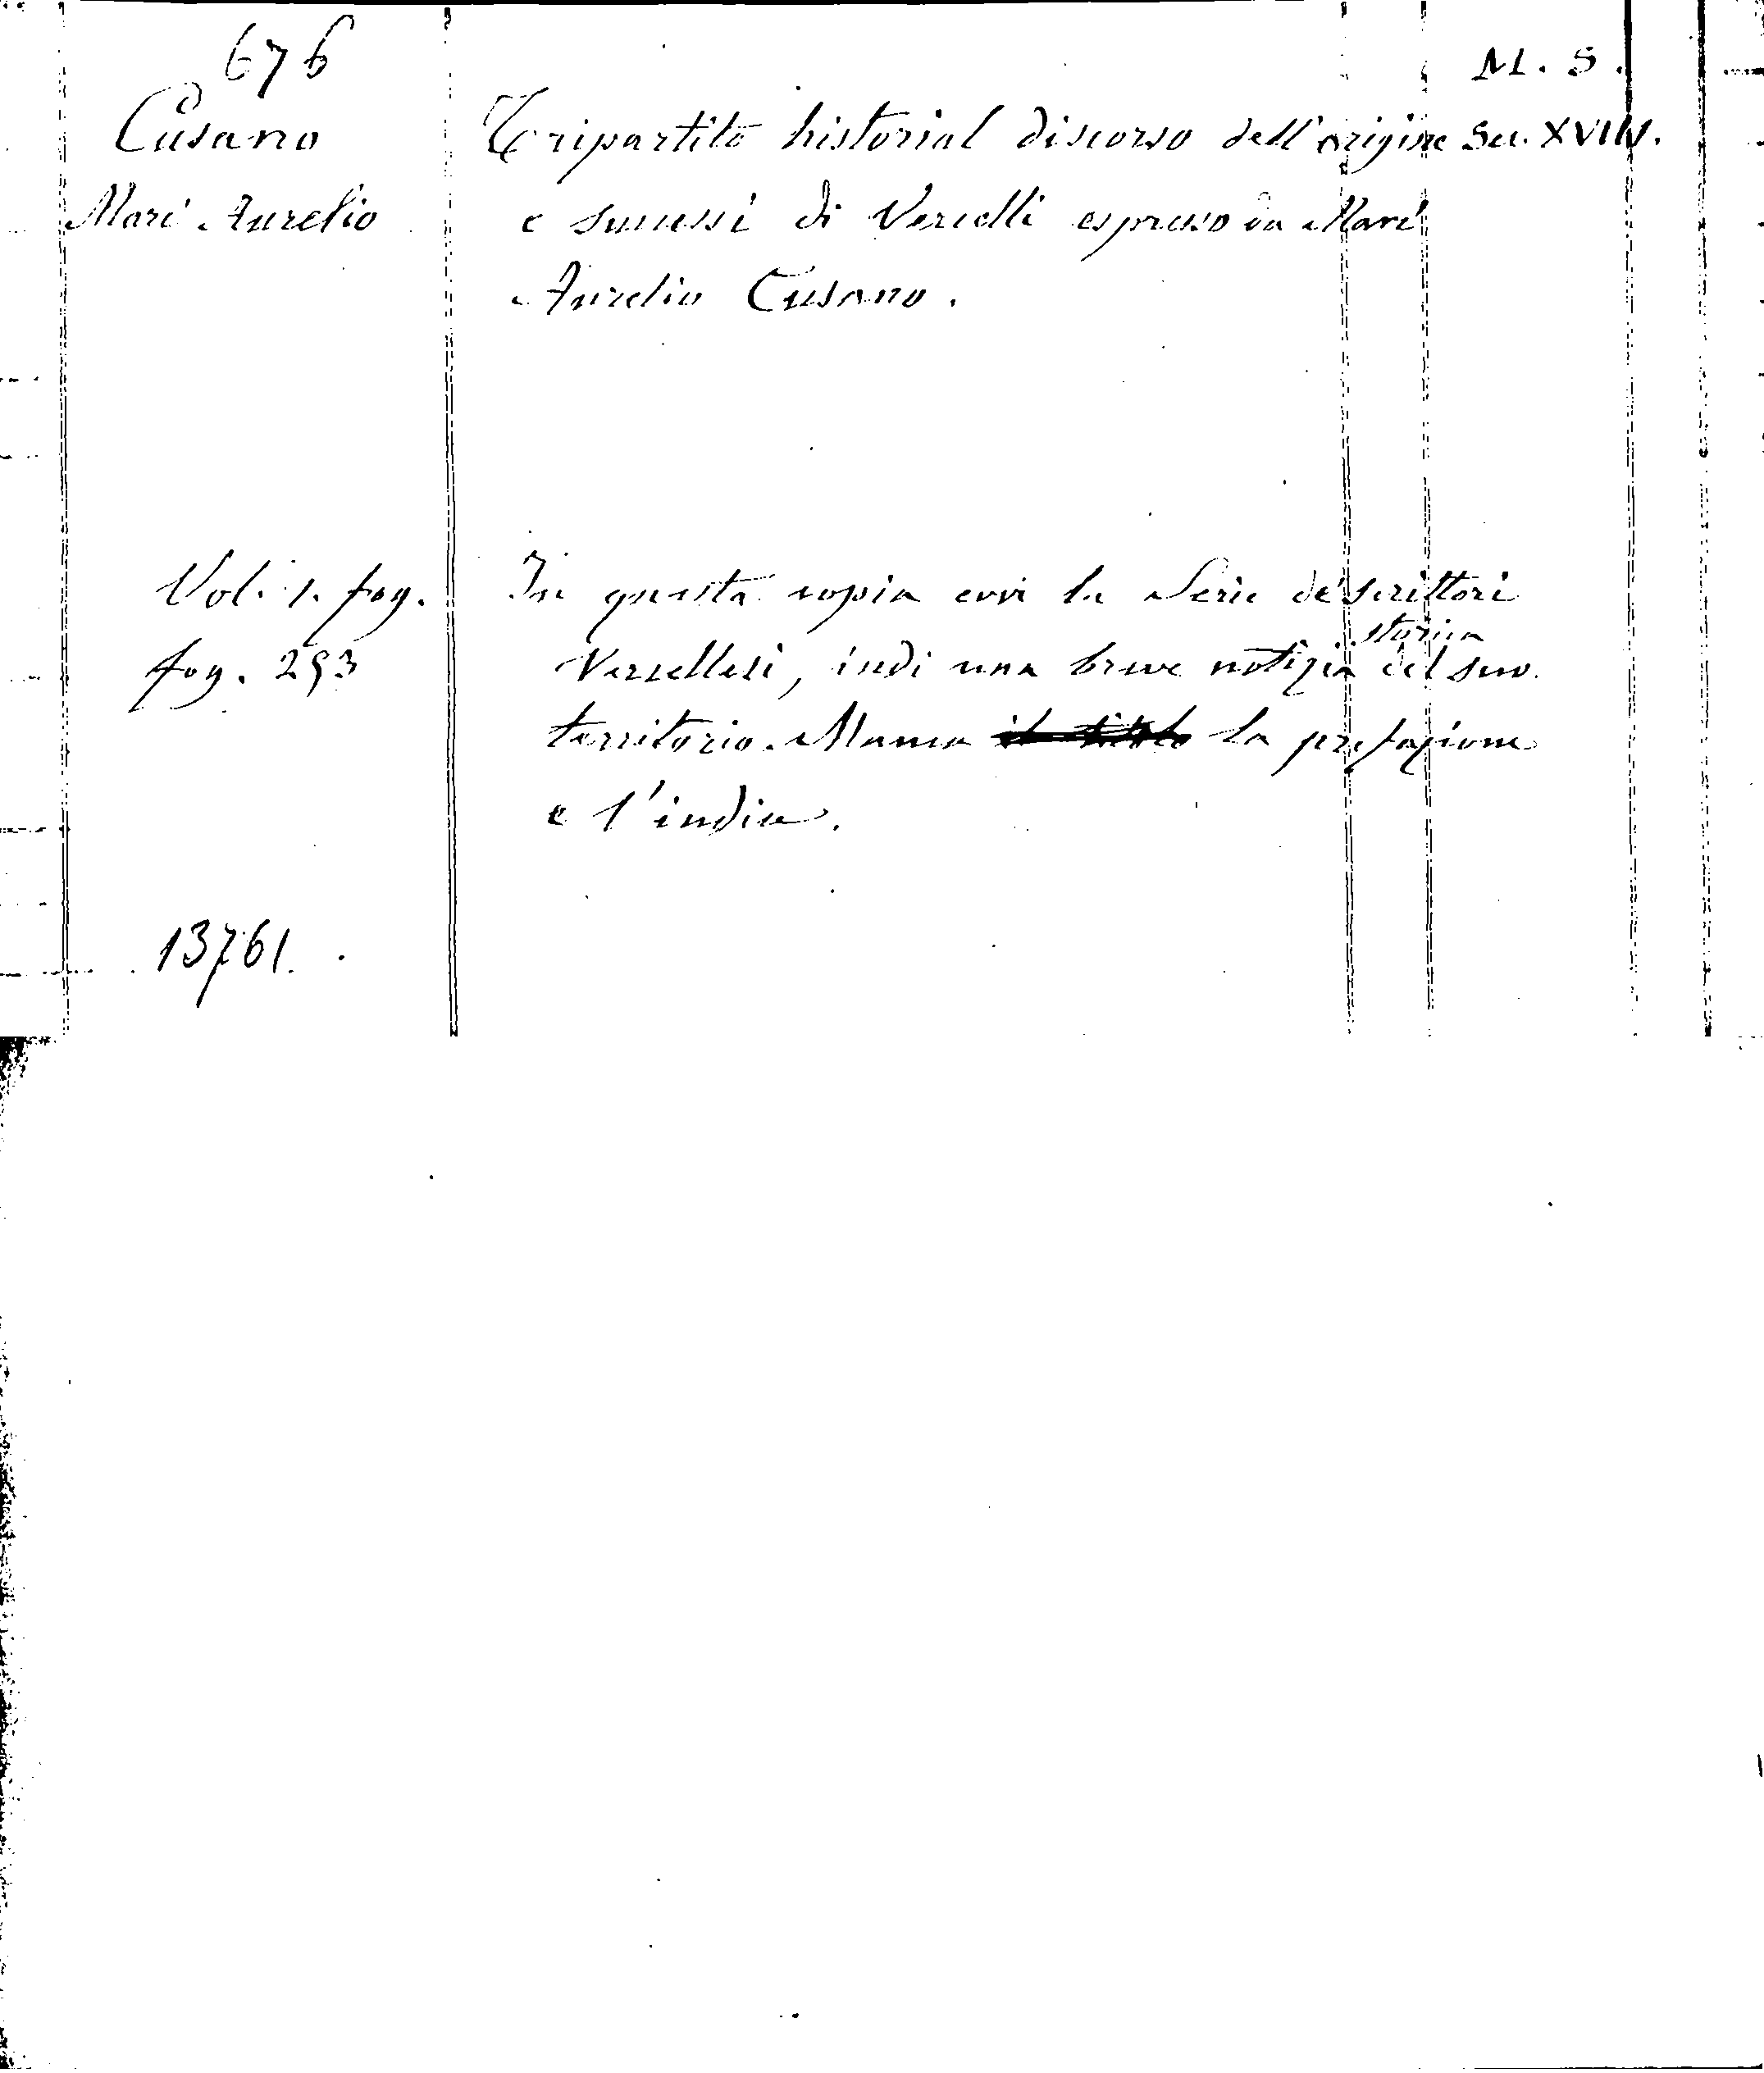 676
M. S.
Cusano
Tripartito historial discorso dell'origine Sec. XVIII.
Marc' Aurelio
e successi di Vercelli espresso da Marc'
Aurelio Cusano.
Vol. 1. fog.
In questa copia evvi la Serie de' scrittori
storica
fog. 293
Vercellesi, indi una breve notizia del suo
territorio. Manca il titolo la prefazione
e l'indice.
13761.